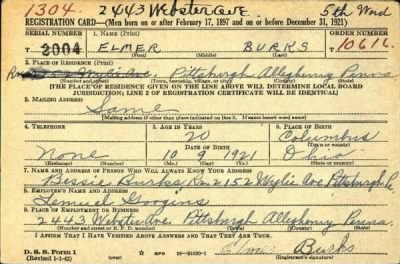 1304. 2443 Webster Ave. 5th Ward
REGISTRATION CARD—(Men born on or after February 17, 1897 and on or before December 31, 1921)
SERIAL NUMBER 1. NAME (Print) ORDER NUMBER
T 2004 ELMER BURKS 10616
(First) (Middle) (Last)
2. PLACE OF RESIDENCE (Print)
Wylie Ave. Pittsburgh Allegheny Penna
(Number and street) (Town, township, village, or city) (County) (State)
[THE PLACE OF RESIDENCE GIVEN ON THE LINE ABOVE WILL DETERMINE LOCAL BOARD
JURISDICTION; LINE 2 OF REGISTRATION CERTIFICATE WILL BE IDENTICAL]
3. MAILING ADDRESS
Same
[Mailing address if other than place indicated on line 2. If same insert word same]
4. TELEPHONE 5. AGE IN YEARS 6. PLACE OF BIRTH
20 Columbus
DATE OF BIRTH (Town or county)
None 10 9 1921 Ohio
(Exchange) (Number) (Mo.) (Day) (Yr.) (State or country)
7. NAME AND ADDRESS OF PERSON WHO WILL ALWAYS KNOW YOUR ADDRESS
Bessie Burks 2152 Wylie Ave Pittsburgh Pa.
8. EMPLOYER'S NAME AND ADDRESS
Lemuel Googins
9. PLACE OF EMPLOYMENT OR BUSINESS
2443 Webster Ave. Pittsburgh Allegheny Penna.
(Number and street or R. F. D. number) (Town) (County) (State)
I AFFIRM THAT I HAVE VERIFIED ABOVE ANSWERS AND THAT THEY ARE TRUE.
D. S. S. Form 1
(Revised 1-1-42) (over) GPO Elmer Burks
(Registrant's signature)